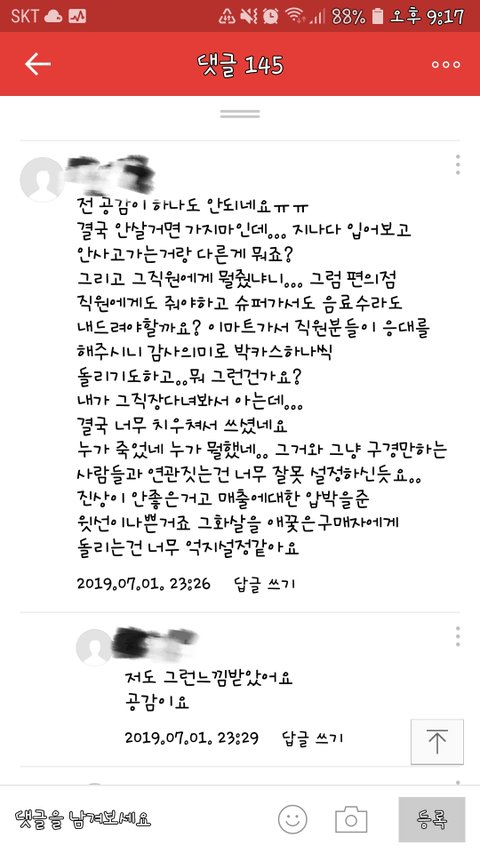 SKT 88% 오후 9:17
댓글 145
전 공감이 하나도 안되네요ㅠㅠ
결국 안살거면 가지마인데... 지나다 입어보고
안사고가는거랑 다른게 뭐죠?
그리고 그직원에게 뭘줬냐니... 그럼 편의점
직원에게도 줘야하고 슈퍼가서도 음료수라도
내드려야할까요? 이마트가서 직원분들이 응대를
해주시니 감사의미로 박카스하나씩
돌리기도하고..뭐 그런건가요?
내가 그직장다녀봐서 아는데...
결국 너무 치우쳐서 쓰셨네요
누가 죽었네 누가 뭘했네.. 그거와 그냥 구경만하는
사람들과 연관짓는건 너무 잘못 설정하신듯요..
진상이 안좋은거고 매출에대한 압박을준
윗선이나쁜거죠 그화살을 애꿎은구매자에게
돌리는건 너무 억지설정같아요
2019.07.01. 23:26 답글 쓰기
저도 그런느낌받았어요
공감이요
2019.07.01. 23:29 답글 쓰기
댓글을 남겨보세요 등록